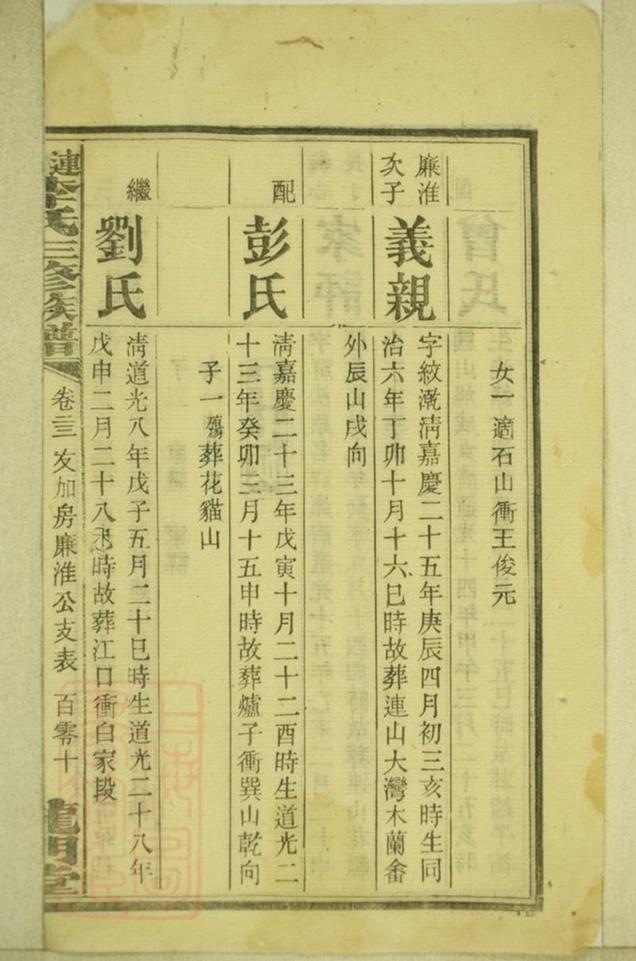 女一適石山衝王俊元
廉淮
次子
義親
字紋瀧清嘉慶二十五年庚辰四月初三亥時生同
治六年丁卯十月十六巳時故葬連山大灣木蘭畬
外辰山戌向
配
彭氏
清嘉慶二十三年戊寅十月二十二酉時生道光二
十三年癸卯三月十五申時故葬爐子衝巽山乾向
子一殤葬花貓山
繼
劉氏
清道光八年戊子五月二十巳時生道光二十八年
戊申二月二十八未時故葬江口衝白家段
漣李氏三修族譜
卷三三 友加房廉淮公支表 百零十
龍門堂